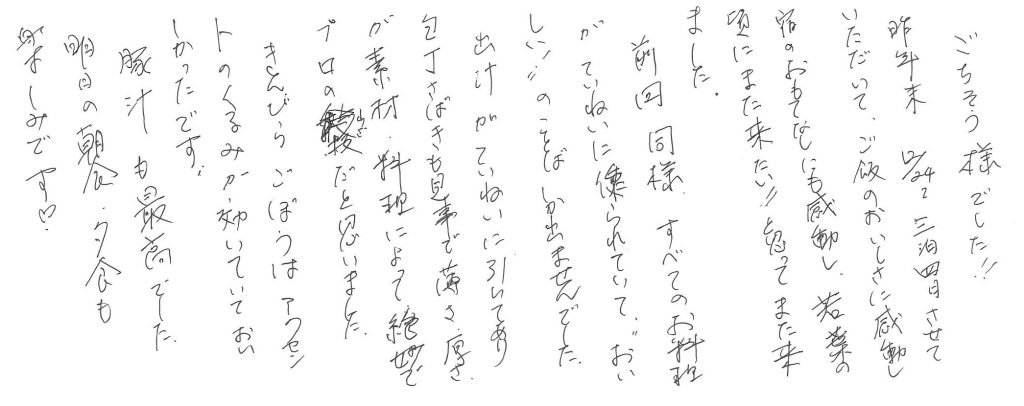 ごちそう様でした!!
昨年末 12/24〜三泊四日させて
いただいて、ご飯のおいしさに感動し
宿のおもてなしにも感動し、若葉の
頃にまた来たい!!と思ってまた来
ました。
前回同様、すべてのお料理
がていねいに作られていて、"おい
しい!!"のことばしか出ませんでした。
出汁がていねいに引いてあり
包丁さばきも見事で薄さ、厚さ
が素材、料理によって絶妙で
プロの技だと思いました。
きんぴらごぼうはアクセン
トのくるみが効いていておい
しかったです。
豚汁も最高でした。
明日の朝食、夕食も
楽しみです♡